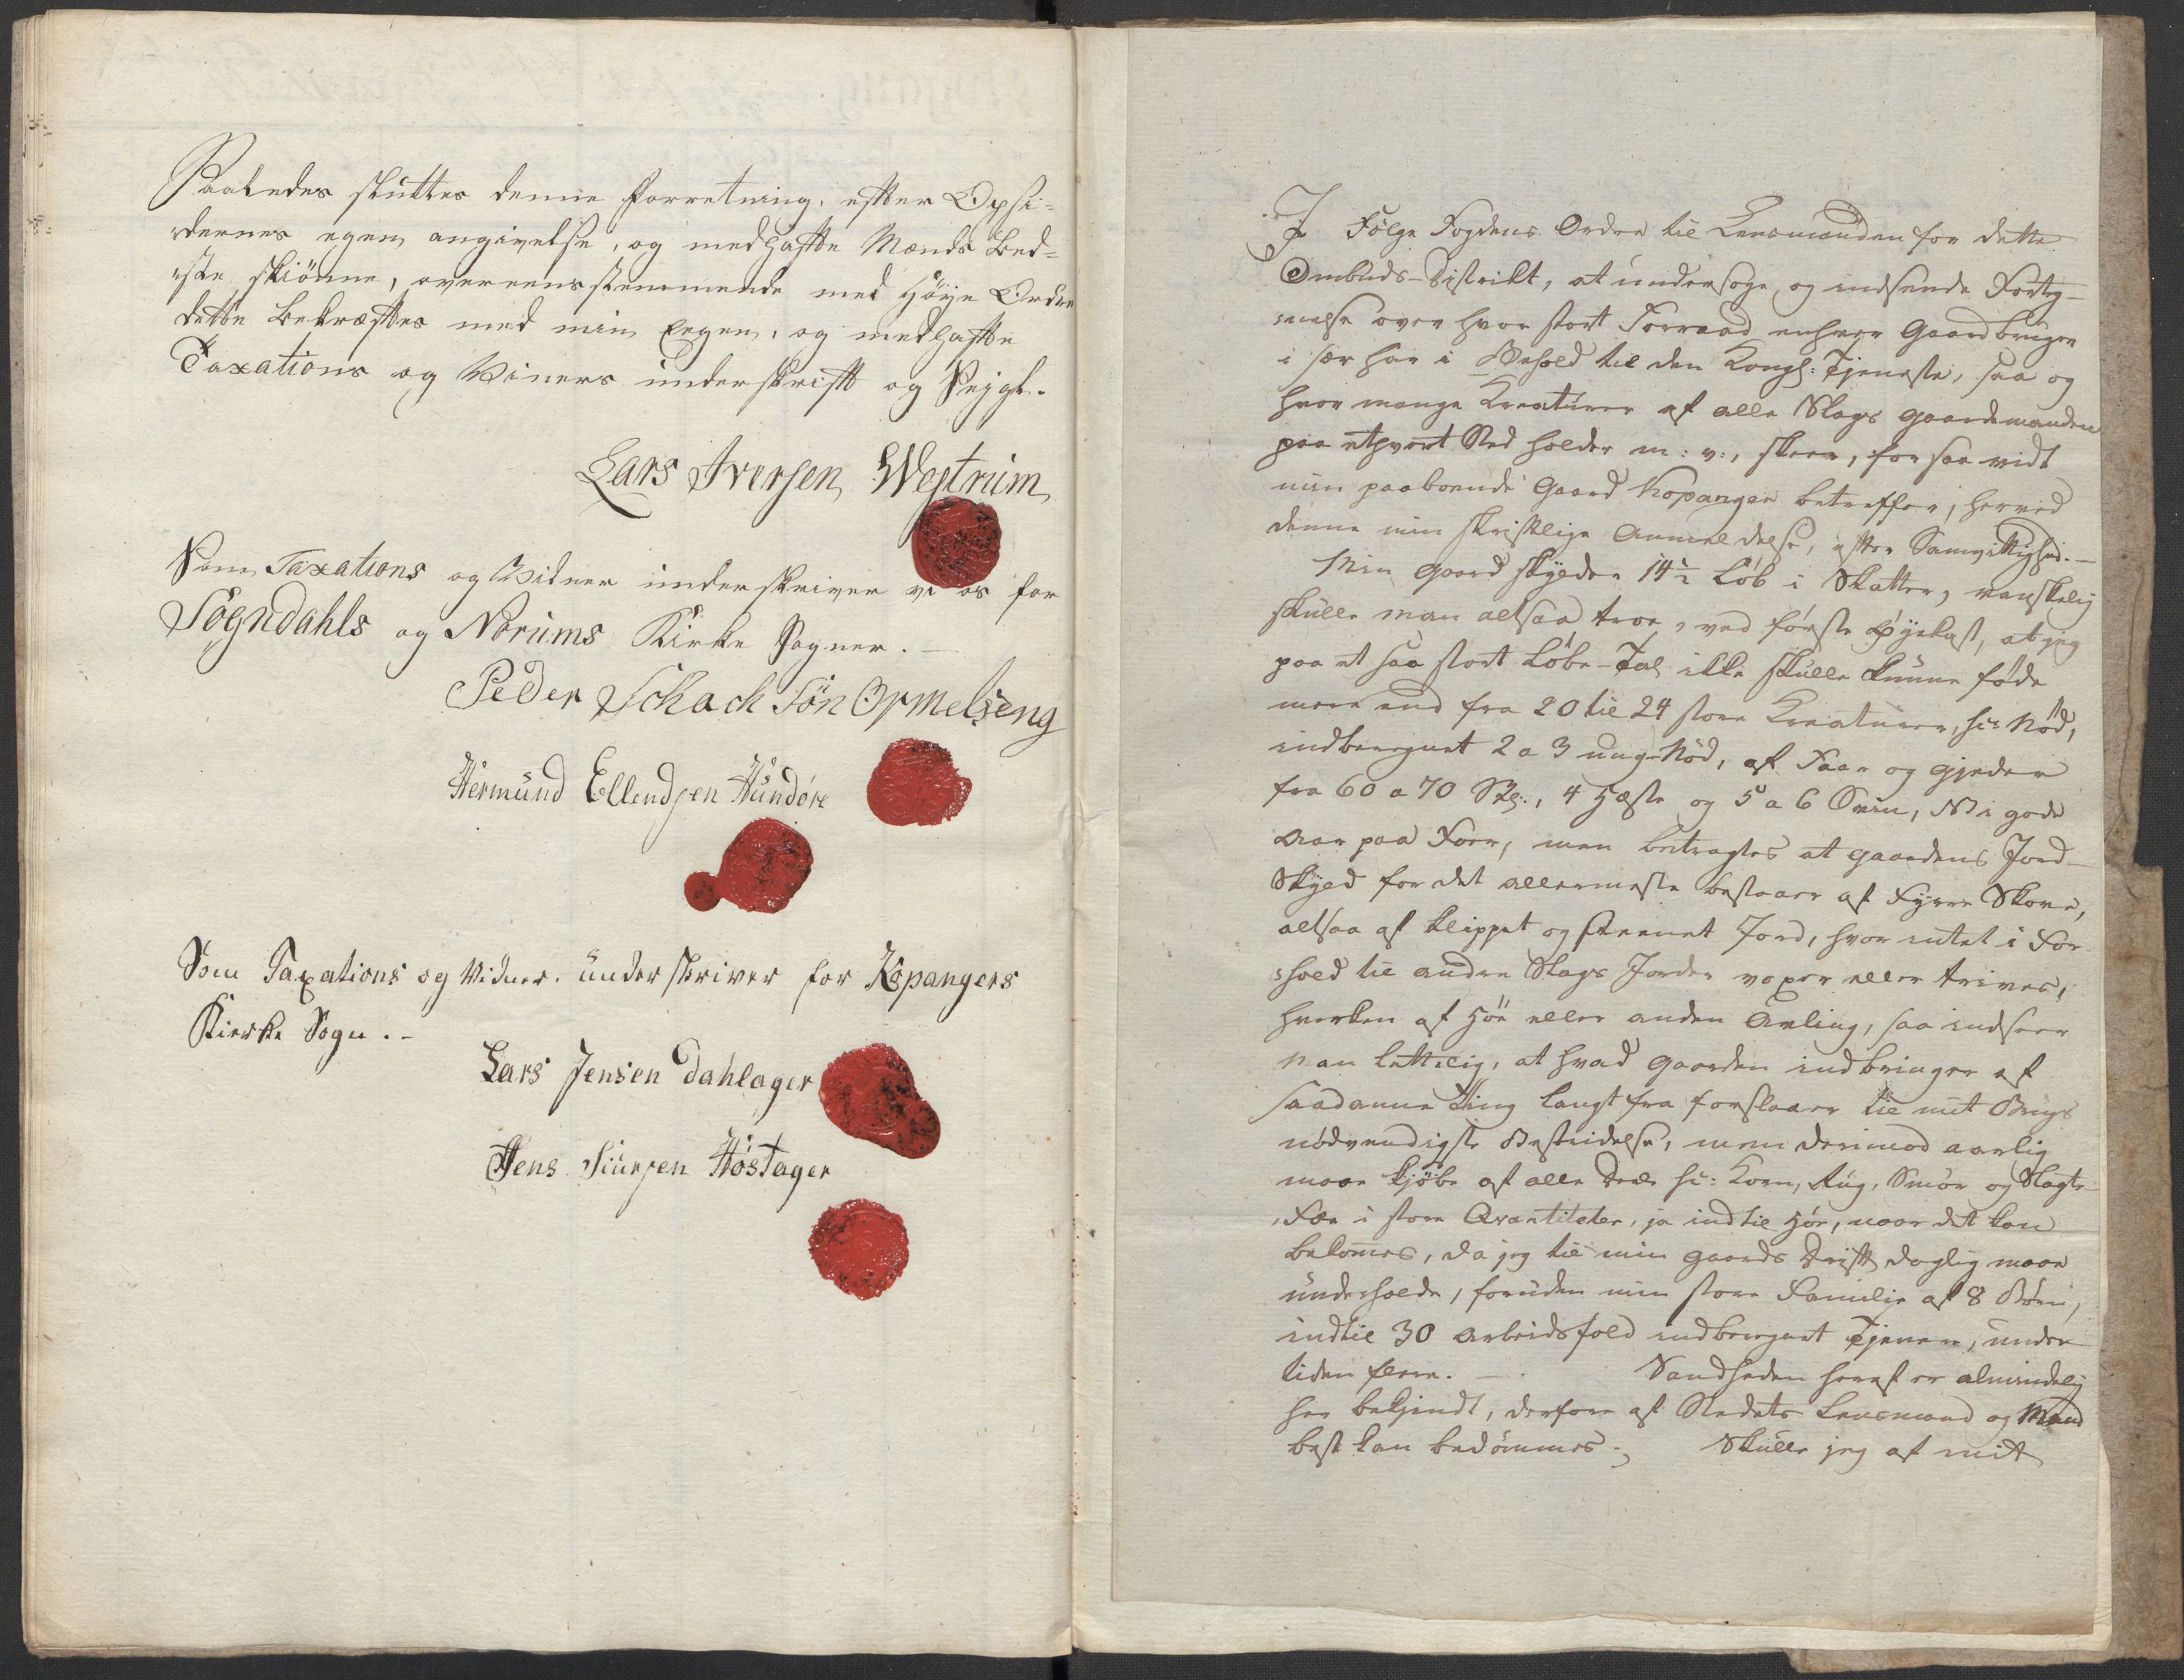 Saaledes sluttes denne Forretning, efter Opsi-
dernes egen angivelse, og medhafte Mænds Bed-
ste skiönne, overeensstemmende med Höye Ordre
dette Bekræftes med min Eegen, og medhafte
Taxations og Viners underskrift og Seigl.
Lars Iversen Westrum
Som Taxations og Vidner underskriver vi os for
Sögndahls og Norums Kirke Sogner. —
Peder Schack Sön Ormelseng
Hermund Ellendsen Hundöre
Som Taxations og Vidner. underskriver for Kopangers
Kierke Sogn. -
Lars Jensen Dahlager
Jens Siursen Höstager
I Følge Fogdens Ordre til Lensmanden for dette
Ombuds-Distrikt, at undersøge og indsende Forteg-
nelse over hvor stort Forraad enhver Gaardbruger
i sær har i Behold til den Kongl: Tjeneste, saa og
hvor mange Kreaturer af alle Slags Gaardmanden
paa ethvert Sted holder m: v:, skeer, for saa vidt
min paaboende Gaard Kopanger betreffer, herved
denne min skriftlige Anmeldelse, efter Samvittighed. —
Min Gaard skylder 14½ Løb i Skatter, vanskelig
skulle man altsaa troe, ved første Øyekast, at jeg
paa et saa stort Løbe-Tal ikke skulle kunne føde
mere end fra 20 til 24 store Kreaturer, si: Nød,
indberegnet 2 a 3 ung-Nød, af Faar og Gjeder
fra 60 a 70 Stk:, 4 Heste og 5 a 6 Sviin, NB i gode
Aar paa Foer, men betragtes at Gaardens Jord-
Skyld for det allermeste bestaaer af Fyrre Skove,
altsaa af klippet og steenet Jord, hvor intet i For-
hold til andre Slags Jorder voxer eller trives,
hverken af Høe eller anden Avling, saa indseer
man lettelig, at hvad Gaarden indbringer af
saadanne Ting langt fra forslaaer til mit Brugs
nødvendigste Bestridelse, men derimod aarlig
maae kjøbe af alle Dele si: Korn, Rug, Smør og Slagte-
Fæ i store Qvantiteter, ja indtil Høe, naar det kan
bekomes, da jeg til min Gaards Drift daglig maae
underholde, foruden min store Familie af 8 Børn,
indtil 30 Arbeidsfolk indberegnet Tjenere, under
tiden flere. — Sandheden heraf er almindelig
her bekjendt, derfore af Stedets Lensmand og Mænd
best kan bedømmes; Skulle jeg af mit